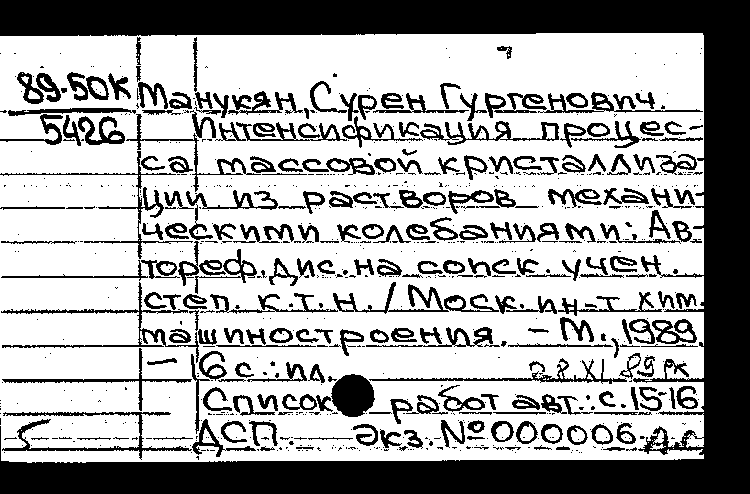 89-50К Манукян, Сурен Гургенович.
5426 Интенсификация процес-
са массовой кристаллиза-
ции из растворов механи-
ческими колебаниями: Ав-
тореф. дис. на соиск. учен.
степ. к.т.н. / Моск. ин-т хим.
машиностроения. - М., 1989.
- 16 с.: ил. 28.XI.89
Список работ авт.: с. 15-16.
5 ДСП. Экз. № 000006